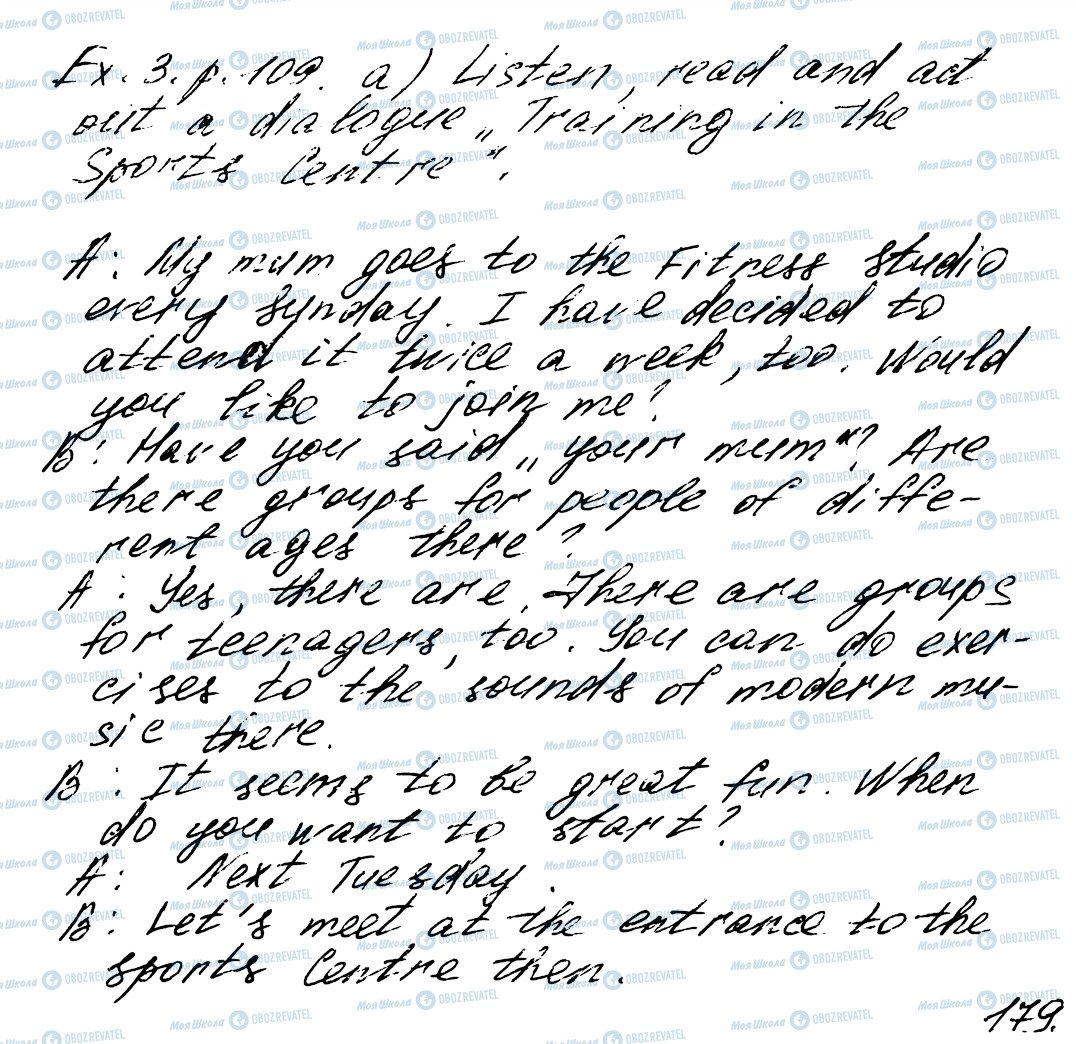 Ex. 3. p. 109. a) Listen, read and act
out a dialogue „Training in the
Sports Centre".
A: My mum goes to the Fitness studio
every Synday. I have decided to
attend it twice a week, too. Would
you like to join me?
B: Have you said „your mum"? Are
there groups for people of diffe-
rent ages there?
A: Yes, there are. There are groups
for teenagers, too. You can do exer-
cises to the sounds of modern mu-
sic there.
B: It seems to be great fun. When
do you want to start?
A: Next Tuesday.
B: Let's meet at the entrance to the
sports Centre then.
179.